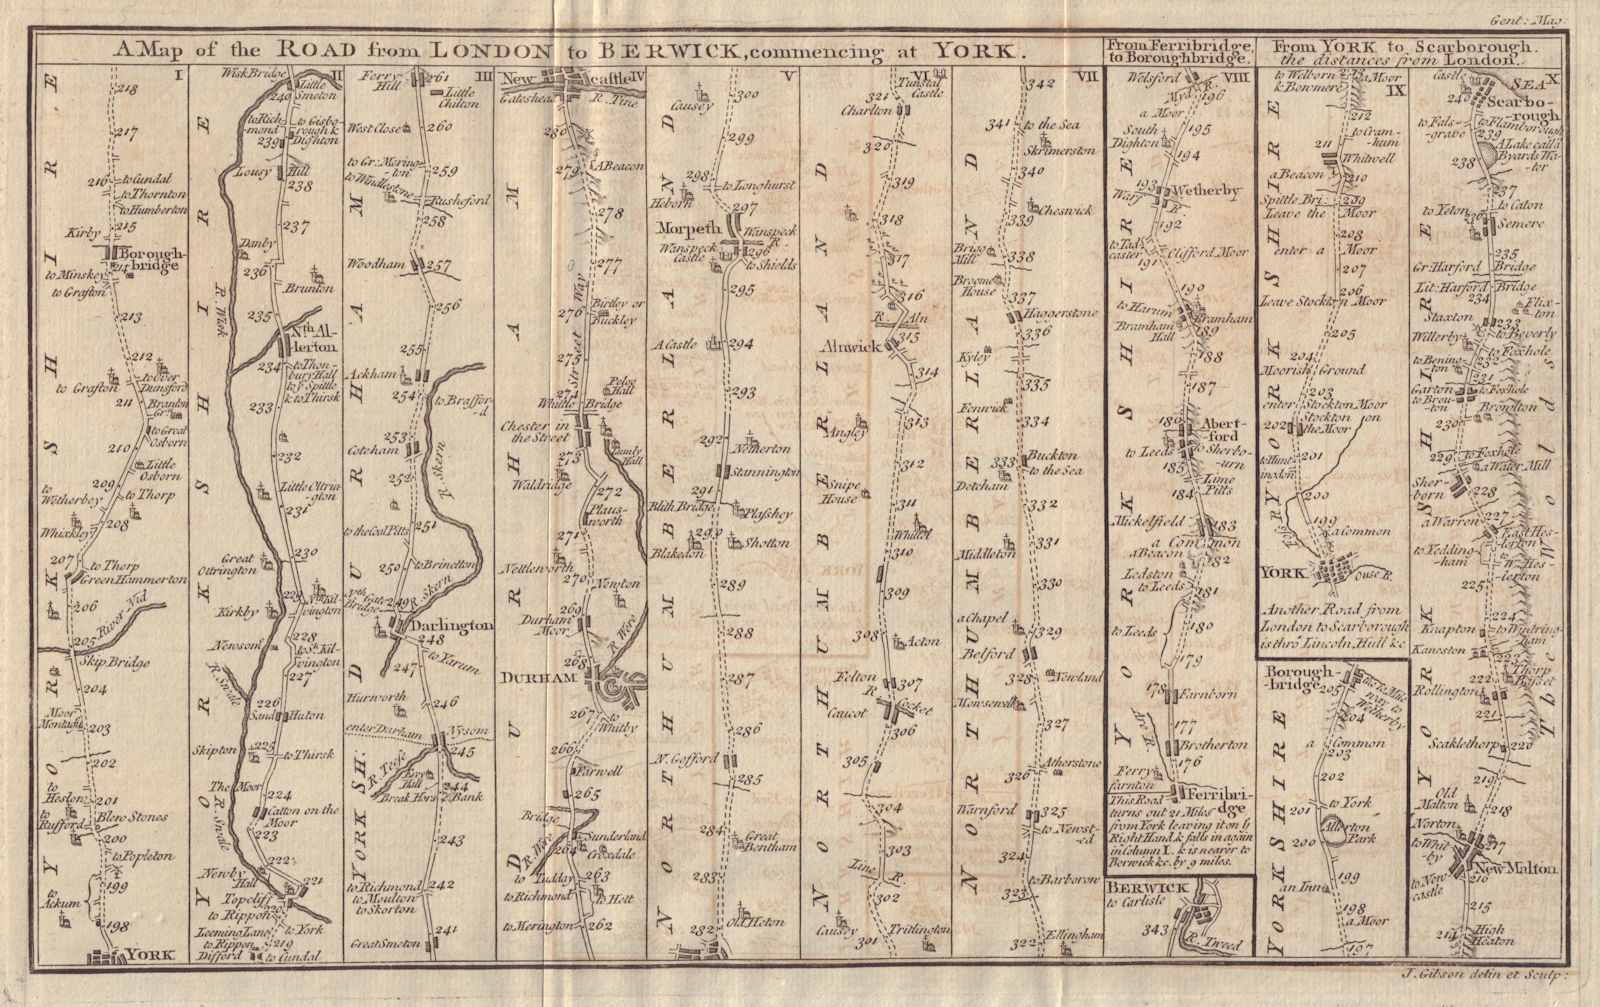 Gent: Mag:
A Map of the ROAD from LONDON to BERWICK, commencing at YORK.
From Ferribridge,
to Boroughbridge.
From YORK to Scarborough.
the distances from London.
I
218
217
216
to Cundal
to Thornton
to Humberton
215
Kirby
Borough-
bridge
to Minskey
to Grafton
213
212
to Grafton
to Over
Dunsford
211
Branton
Grn
to Great
Osborn
210
Little
Osborn
209
to
Wetherbey
to Thorp
208
Whixkley
207
to Thorp
Green Hammerton
206
River Nid
205
Skip Bridge
204
Moor
Montagu
203
202
to
Heslon
201
to
Rufford
Blew Stones
200
to Popleton
199
to
Ackum
198
YORK
YORKSHIRE
II
Wisk Bridge
Little
Smeton
240
to Rich-
mond
to Gisbo-
rough &
Dighton
239
Lousy Hill
238
237
Danby
236
Brunton
R. Wisk
235
Nth Al-
lerton
234
to Thon-
bury Hall
to ye Spittle
& to Thirsk
233
232
Little Ottrin-
gton
231
230
Great
Ottrington
Nth Kil-
vington
Kirkby
228
Newsom
to Sth Kil-
vington
227
R. Swale
226
Sand Huton
225
Skipton
to Thirsk
The Moor
224
Catton on the
Moor
223
R. Swale
222
Newby
Hall
221
Topclif
to Rippon
to York
Leeming Lane
219
to Rippon
Difford
to Cundal
YORKSHIRE
III
Ferry
Hill
261
Little
Chilton
West Close
260
to Gr: Mering-
ton
259
to Windlestone
Rusheford
258
Woodham
257
256
255
Ackham
254
to Braffor-
d
253
Cotcham
R. Skern
252
to the Coal Pitts
251
250
to Brinetton
249
R. Skern
Darlington
248
to Yarum
247
Hurworth
246
enter Durham
Nysom
245
R. Tees
Hall
244
Break Hors
Bank
243
242
to Richmond
to Moulton
to Skorton
241
Great Smeton
YORKSH:
DURHAM
IV
New
castle
Gateshead
R. Tine
280
279
A Beacon
278
277
276
Birtley or
Buckley
Street Way
275
Peloe
Hall
274
Whittle Bridge
Chester in
the Street
273
Lumly
Hall
Waldridge
272
Plaus-
worth
271
Nettleworth
270
Newton
269
Durham
Moor
268
R. Were
DURHAM
267
to
Whitby
266
Farwell
265
Bridge
R. Were
Sunderland
264
Croxdale
to Tudday
263
to Richmond
to Hott
to Merington
262
DURHAM
V
Causey
300
299
298
to Longhurst
Heborn
297
Morpeth
Wanspeck
R.
296
Wanspeck
Castle
to Shields
295
A Castle
294
293
292
Netherton
Stannington
291
Blith Bridge
Plasshey
290
Blakedon
Shotton
289
288
287
286
N. Gofford
285
284
Great
Bentham
283
Old Heton
282
NORTHUMBERLAND
VI
Tunstal
Castle
321
Charlton
320
319
318
317
316
R. Aln
315
Alnwick
314
313
Angley
312
Snipe
House
311
Whittel
310
309
308
Acton
Felton
307
R.
Caucot
Cocket
306
305
304
303
Line R.
302
Causey
301
Tritlington
NORTHUMBERLAND
VII
342
341
to the Sea
Skrimerston
340
Cheswick
339
Brigg
Mill
338
Broome
House
337
Haggerstone
336
Kyley
335
Fenwick
334
Buckton
to the Sea
333
Detcham
332
Middleton
331
330
a Chapel
329
Belford
328
Newland
Mowsewell
327
326
Atherstone
325
Warnford
to Newst-
ed
324
to Barborow
323
322
Ellingham
NORTHUMBERLAND
VIII
Wolsford
Myd R.
196
a Moor
195
South
Dighton
194
193
Wetherby
Warf
R.
192
to Tad-
caster
191
Clifford Moor
190
to Harum
Bramham
Bramham
Hall
189
188
187
186
Abert-
ford
to Leeds
to Sherbo-
urn
185
Lime
Pitts
184
Mickelfield
183
a Common
a Beacon
182
Ledston
to Leeds
181
to Leeds
180
179
178
Farnborn
177
Are R.
Brotherton
176
Ferry
farnton
Ferribri-
dge
This Road
turns out 21 Miles
from York leaving it on ye
Right Hand, & falls in again
in Column I. & is nearer to
Berwick &c. by 9 miles.
YORKSHIRE
BERWICK
to Carlisle
343
R. Tweed
IX
to Welborn
& Bowmere
a Moor
212
to Cram-
hum
211
Whitwell
a Beacon
210
Spittle Bri:
209
Leave the Moor
208
enter a Moor
207
206
Leave Stockton Moor
205
204
Moorish Ground
203
enter Stockton Moor
Stockton on
the Moor
202
to Hunt-
ingdon
201
200
Foss R.
199
a Common
YORK
Ouse R.
Another Road from
London to Scarborough
is thro' Lincoln, Hull &c
YORKSHIRE
Borough-
-bridge
205
204
a Common
203
202
201
to York
Allerton
Park
200
199
an Inn
198
a Moor
197
YORKSHIRE
X
Castle
SEA
240
Scarbo-
rough
to Fals-
grave
to Flamborough
239
A Lake call'd
Byards Wa-
ter
238
237
to Caton
to Yeton
236
Semere
235
Gr: Harford Bridge
Lit: Harford Bridge
234
Flix-
ton
Staxton
233
to Beverly
Willerby
to Foxhole
232
to Bening-
ton
231
Garton
to Foxhole
to Brou-
ton
Brom̃ton
230
to Foxhole
229
a Water Mill
Sher-
bern
228
a Warren
227
East Hes-
lerton
to Yedding-
ham
W. Hes-
lerton
225
224
Knapton
to Wintring-
ham
Kaneston
223
Thorp
Basset
222
Rollington
221
220
Scaklethorp
219
Old
Malton
218
Norton
to Whit-
by
217
New Malton
to New-
castle
216
215
214
High
Heaton
YORKSHIRE
Yᵉ Wolds
J. Gibson delin et Sculp: